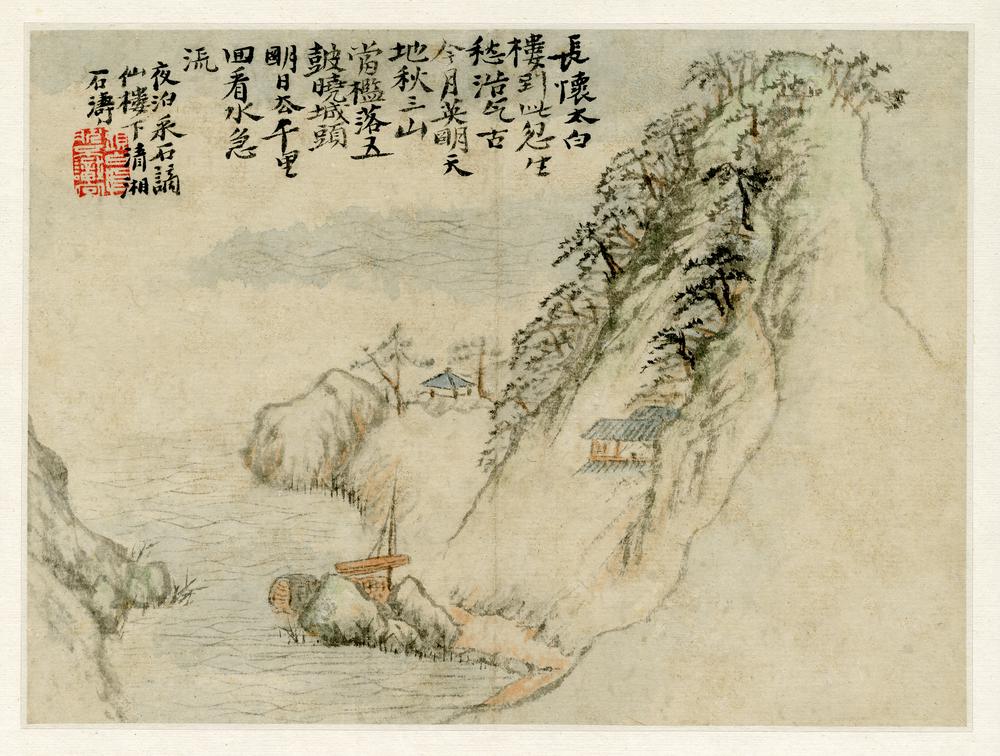 長懷太白
樓到此忽生
愁浩气古
今月英明天
地秋三山
當檻落五
鼓曉城頭
明日苍千里
回看水急
流
夜泊采石謫
仙樓下清湘
石濤